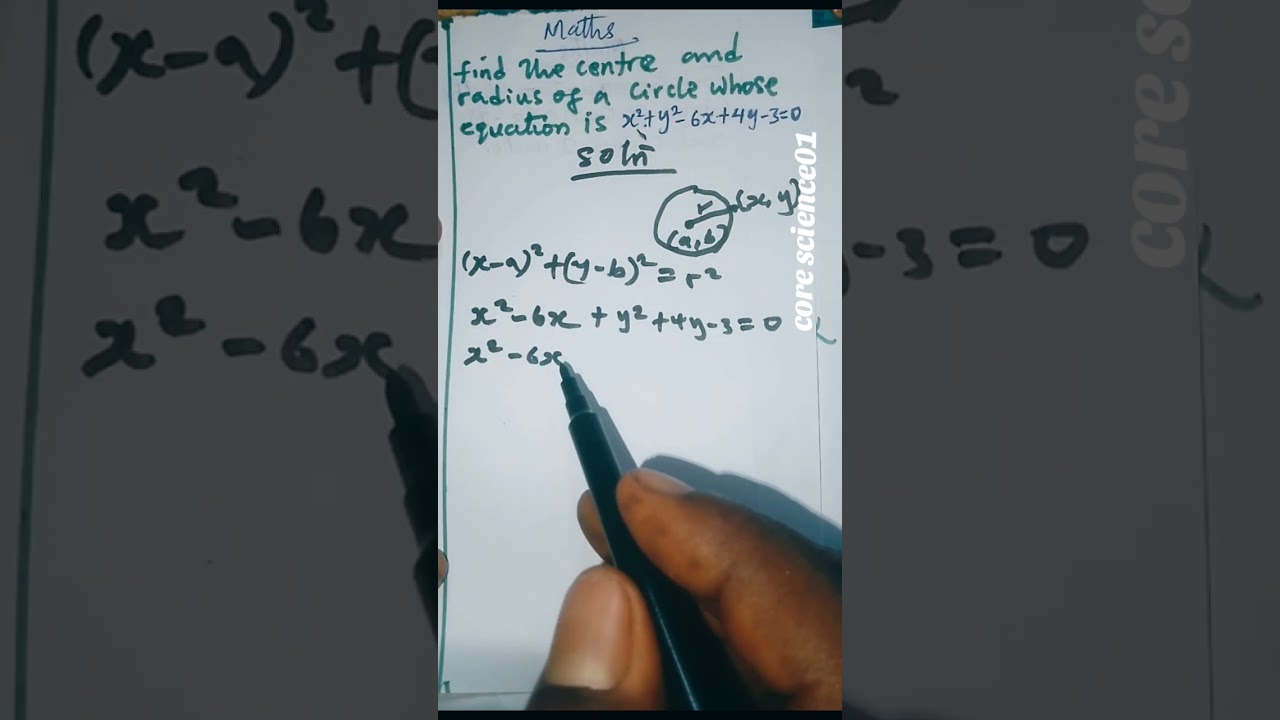 Maths
find the centre and
radius of a circle whose
equation is x²+y²-6x+4y-3=0
soln
(x, y)
r
(a, b)
(x-a)²+(y-b)²=r²
x²-6x+y²+4y-3=0
x²-6x
core science01